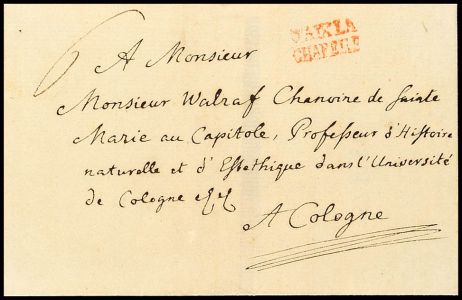 6
D'AIX LA
CHAPELLE
A Monsieur
Monsieur Walraf Chanoine de Sainte
Marie au Capitole, Professeur d'Histoire
naturelle et d'Esthethique dans l'Université
de Cologne
A Cologne